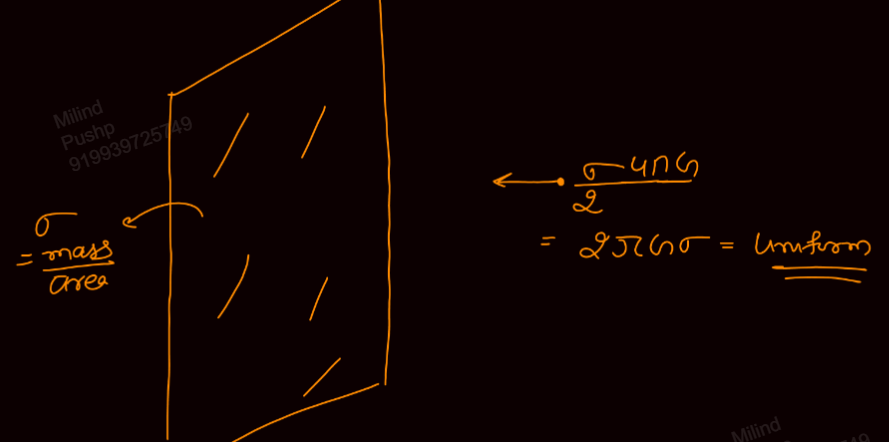 Milind
Pushp
919939725749
σ
= mass
area
σ 4πG
2
= 2πGσ = Uniform
Milind